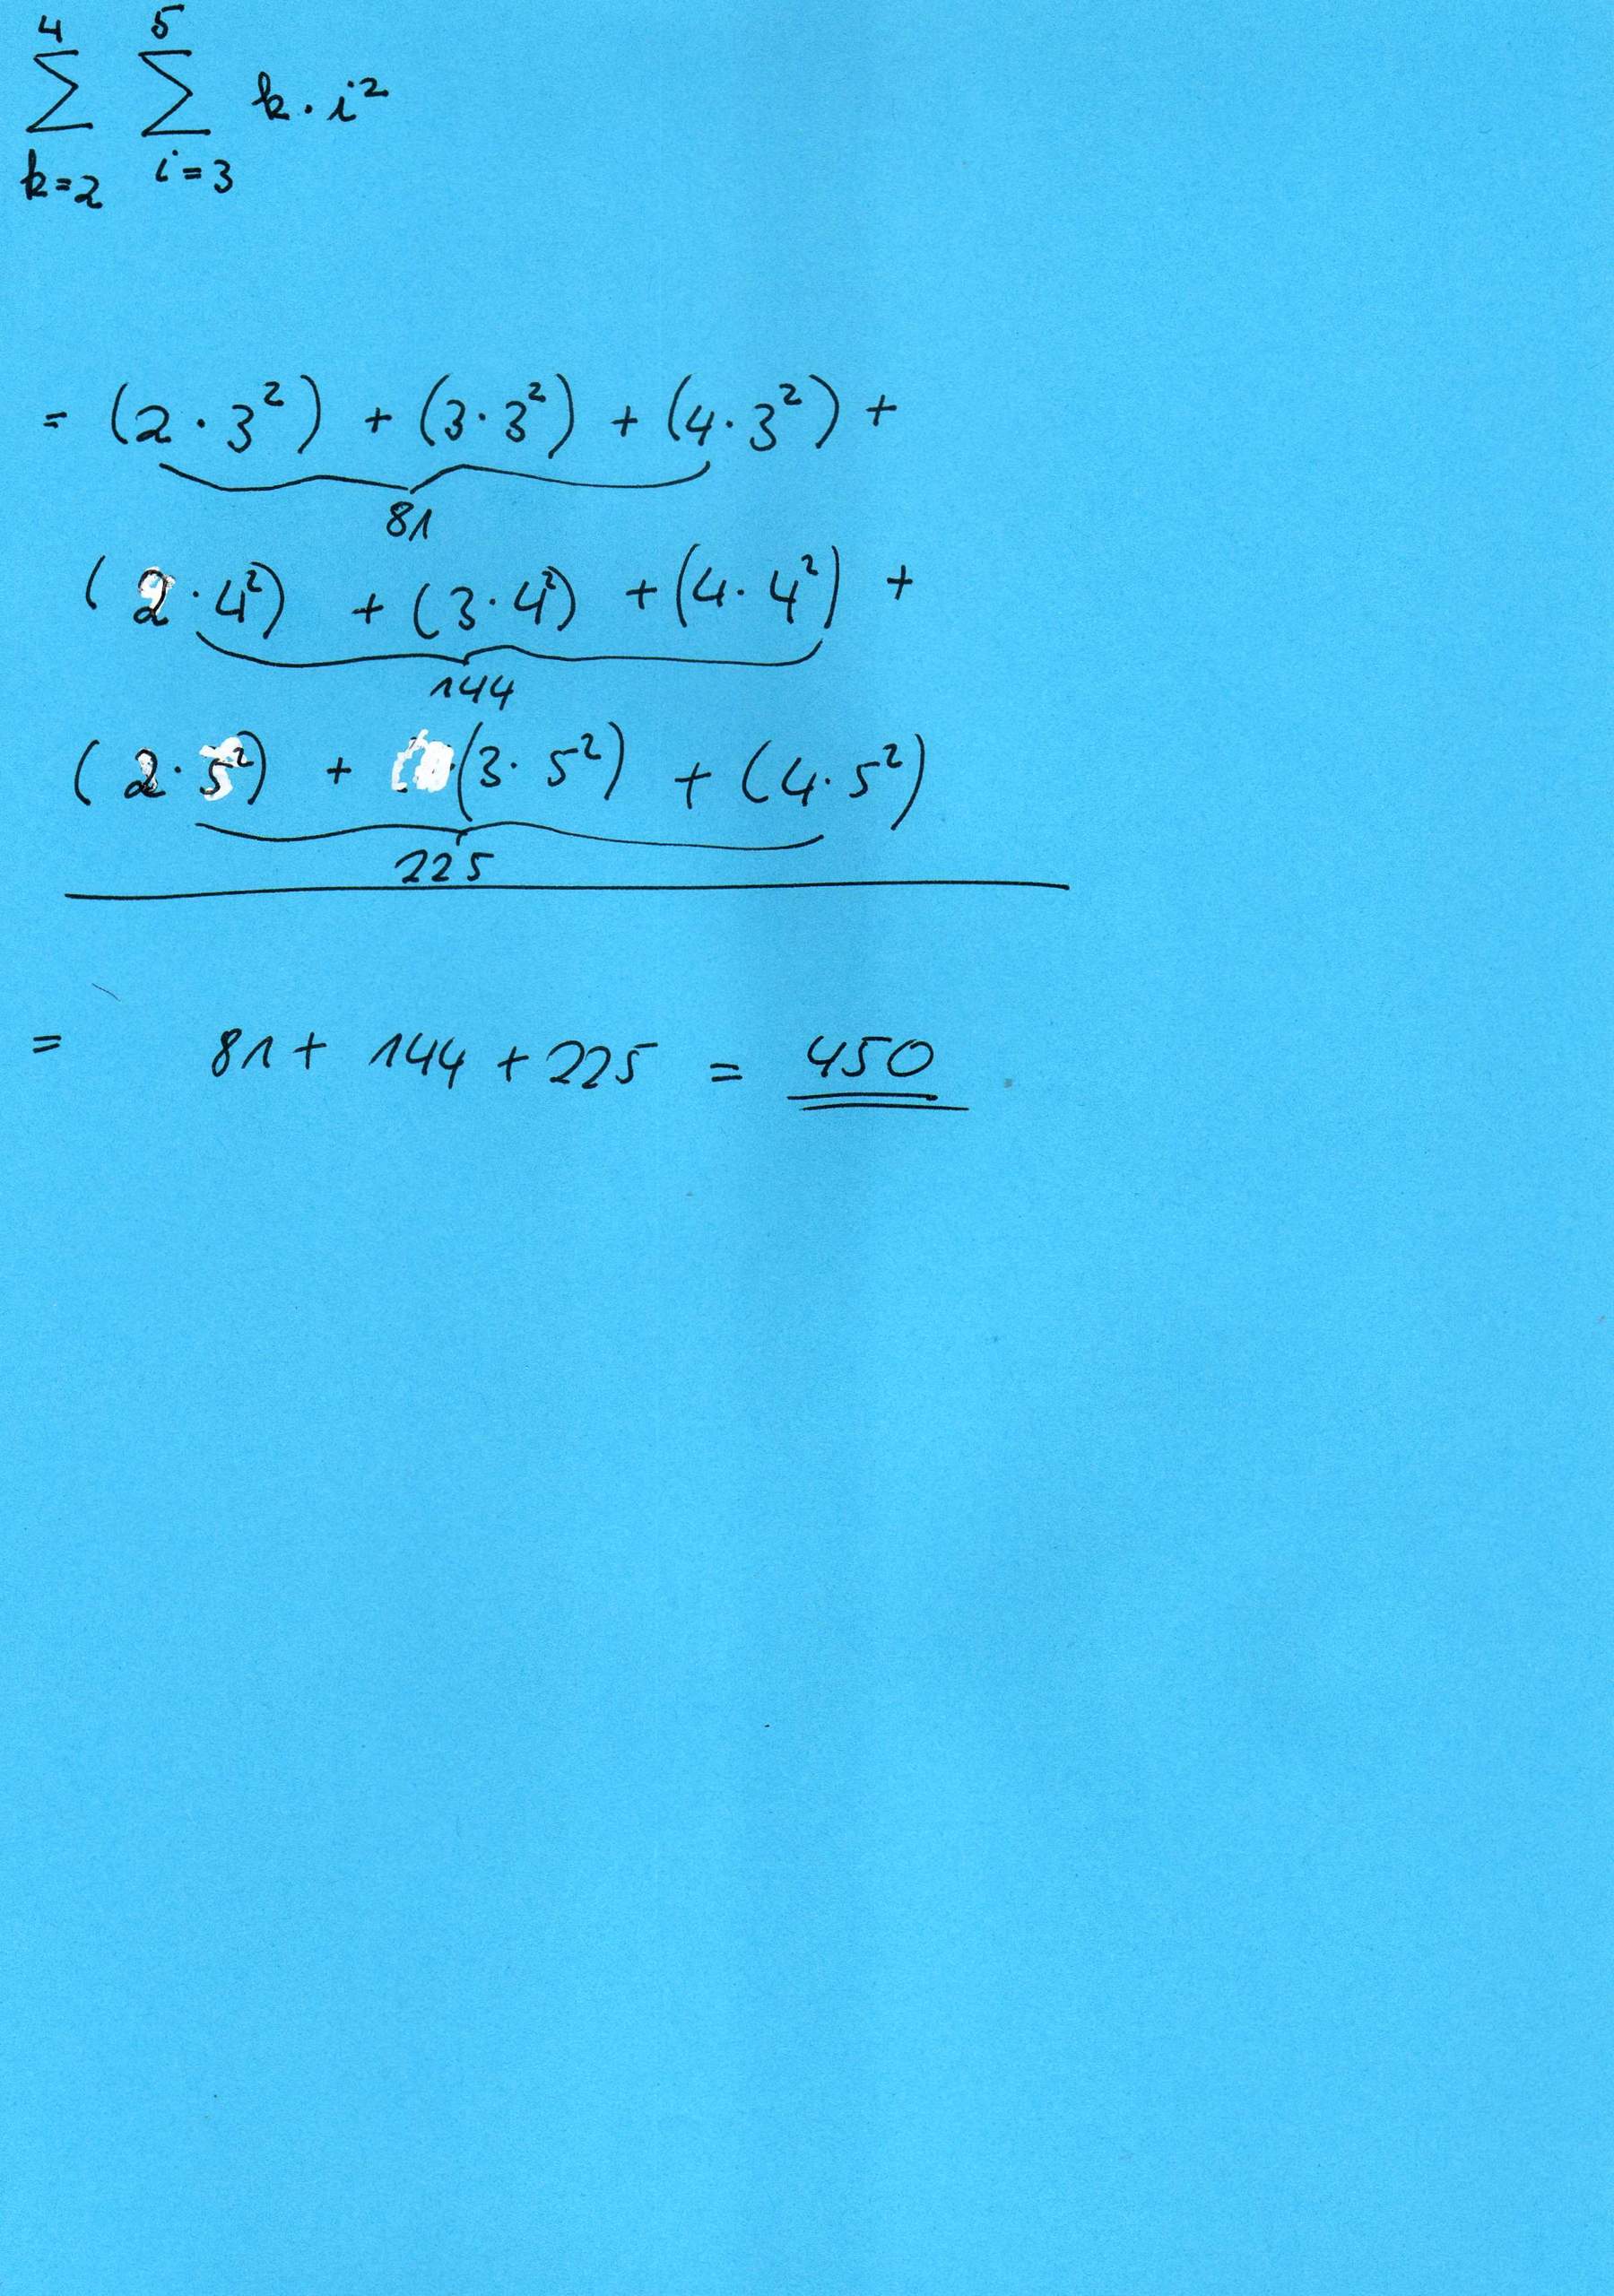 4 5
∑ ∑ k · i²
k=2 i=3
= (2 · 3²) + (3 · 3²) + (4 · 3²) +
81
(2 · 4²) + (3 · 4²) + (4 · 4²) +
144
(2 · 5²) + (3 · 5²) + (4 · 5²)
225
= 81 + 144 + 225 = 450